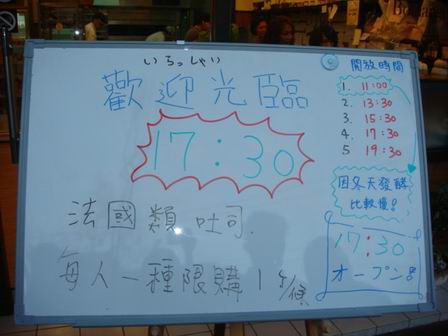 いらっしゃい
歡迎光臨
17:30
法國類吐司.
每人一種限購1个/條
開放時間
1. 11:00
2. 13:30
3. 15:30
4. 17:30
5 19:30
因冬天發酵
比較慢!
17:30
オープン